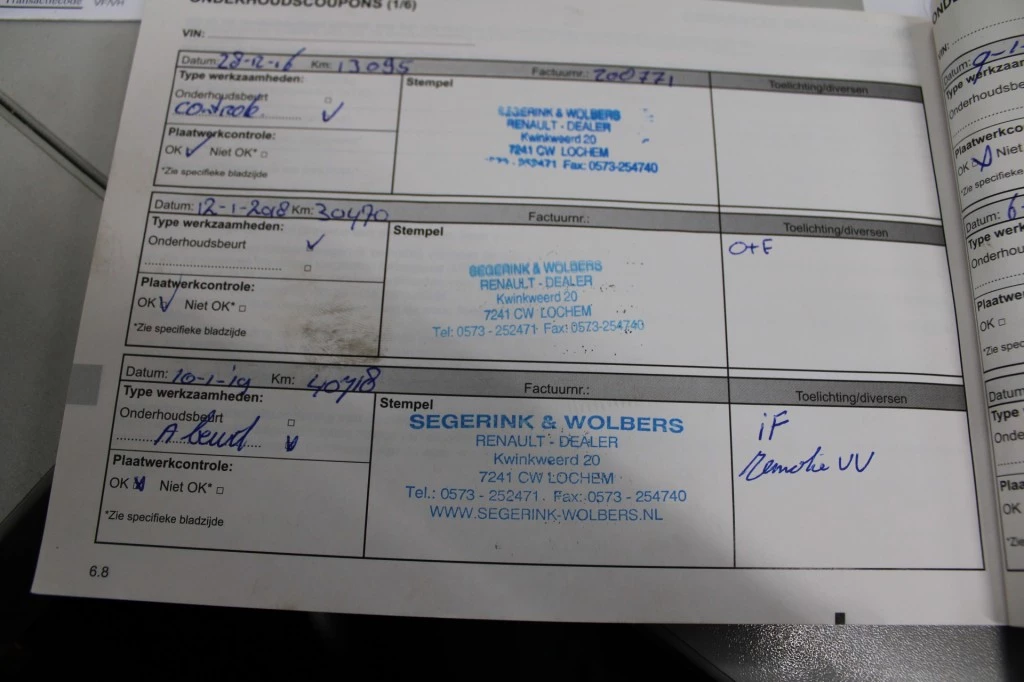 Transactiecode VF/VH
ONDERHOUDSCOUPONS (1/6)
VIN:
Datum: 28-12-16 Km: 13095 Factuurnr.: 200771 Toelichting/diversen
Type werkzaamheden: Stempel
Onderhoudsbeurt
controle
Plaatwerkcontrole:
OK Niet OK*
*Zie specifieke bladzijde
SEGERINK & WOLBERS
RENAULT - DEALER
Kwinkweerd 20
7241 CW LOCHEM
252471 Fax: 0573-254740
Datum: 12-1-2018 Km: 30470 Factuurnr.: Toelichting/diversen
Type werkzaamheden: Stempel
Onderhoudsbeurt
Plaatwerkcontrole:
OK Niet OK*
*Zie specifieke bladzijde
SEGERINK & WOLBERS
RENAULT - DEALER
Kwinkweerd 20
7241 CW LOCHEM
Tel: 0573 - 252471 Fax: 0573-254740
O+F
Datum: 10-1-19 Km: 40718 Factuurnr.: Toelichting/diversen
Type werkzaamheden: Stempel
Onderhoudsbeurt
A beurt
Plaatwerkcontrole:
OK Niet OK*
*Zie specifieke bladzijde
SEGERINK & WOLBERS
RENAULT - DEALER
Kwinkweerd 20
7241 CW LOCHEM
Tel.: 0573 - 252471. Fax: 0573 - 254740
WWW.SEGERINK-WOLBERS.NL
iF
Remolie VV
6.8
VIN:
Datum: 9-1-
Type werkzaam
Onderhoudsbe
Plaatwerkco
OK Niet
*Zie specifieke
Datum: 6-
Type werk
Onderhoud
Plaatwerk
OK
*Zie spec
Datum
Type
Onde
Plaa
OK
*Zie